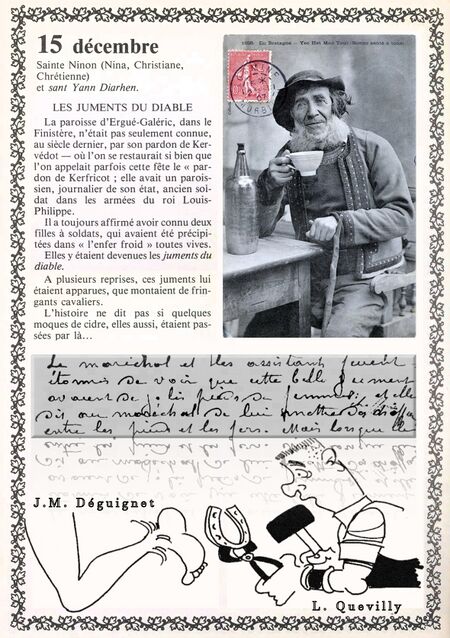 15 décembre
Sainte Ninon (Nina, Christiane,
Chrétienne)
et sant Yann Diarhen.
LES JUMENTS DU DIABLE
La paroisse d'Ergué-Galéric, dans le
Finistère, n'était pas seulement connue,
au siècle dernier, par son pardon de Ker-
védot — où l'on se restaurait si bien que
l'on appelait parfois cette fête le « par-
don de Kerfricot ; elle avait un parois-
sien, journalier de son état, ancien sol-
dat dans les armées du roi Louis-
Philippe.
Il a toujours affirmé avoir connu deux
filles à soldats, qui avaient été précipi-
tées dans « l'enfer froid » toutes vives.
Elles y étaient devenues les juments du
diable.
A plusieurs reprises, ces juments lui
étaient apparues, que montaient de frin-
gants cavaliers.
L'histoire ne dit pas si quelques
moques de cidre, elles aussi, étaient pas-
sées par là...
En Bretagne - Yec'Het Mad
Le maréchal et les assistants furent
étonnés de voir que cette belle jument
avaient de jolis pieds de femme, et elle
dis au maréchal de lui mettre
entre les pieds et les fers. Mais lorsque le
J.M. Déguignet
L. Quevilly